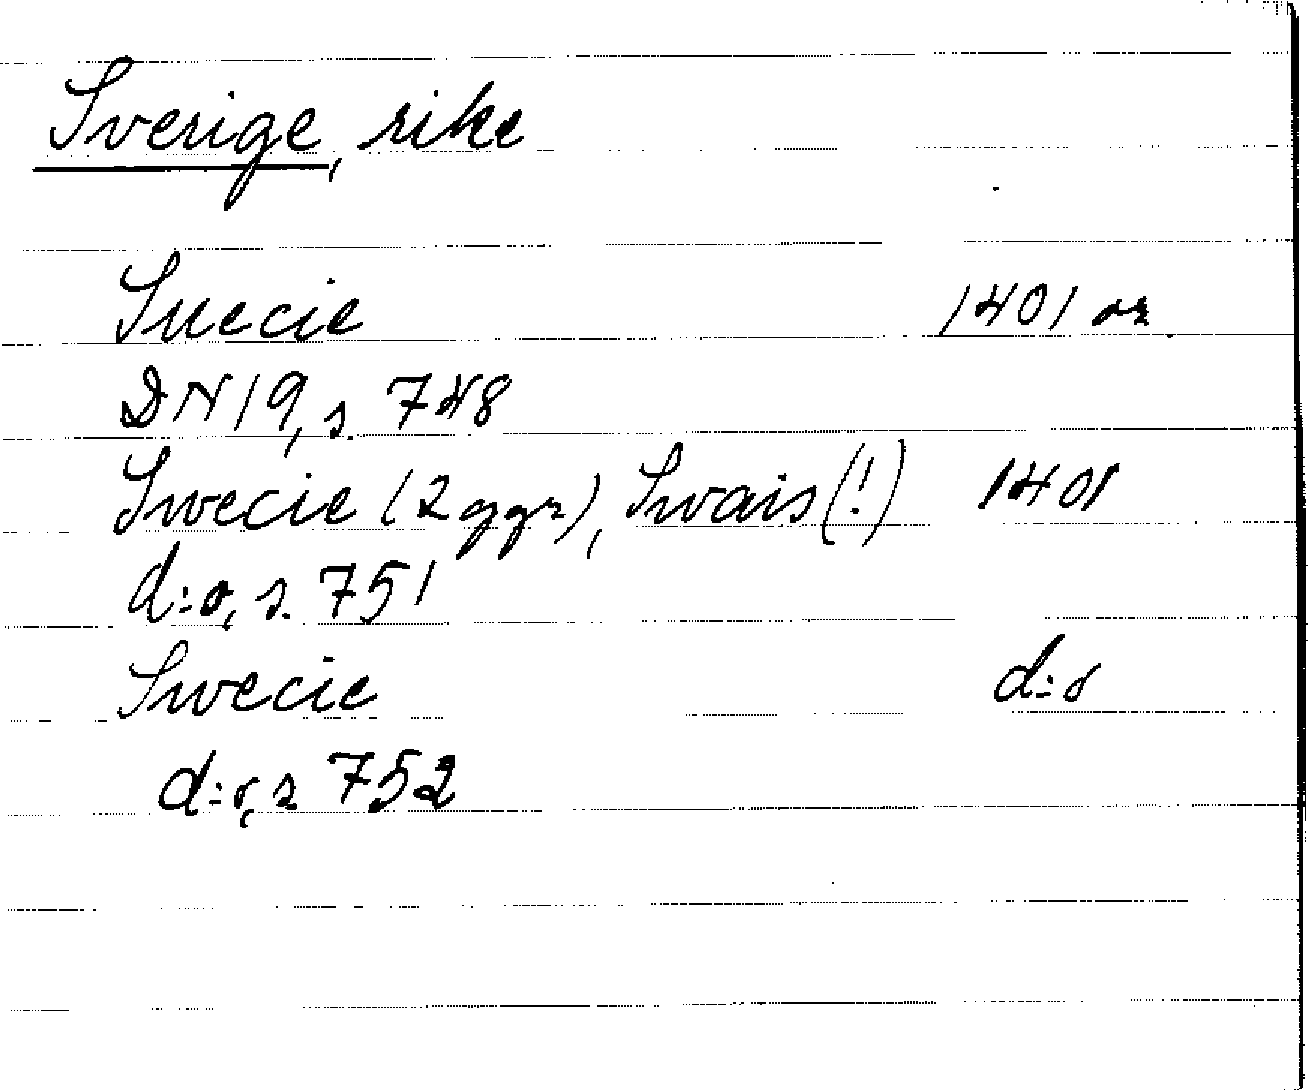 Sverige, rike
Suecie 1401 or.
DN 19, s. 748
Swecie (2 ggr), Swais (!) 1401
d:o, s. 751
Swecie d:o
d:o, s. 752